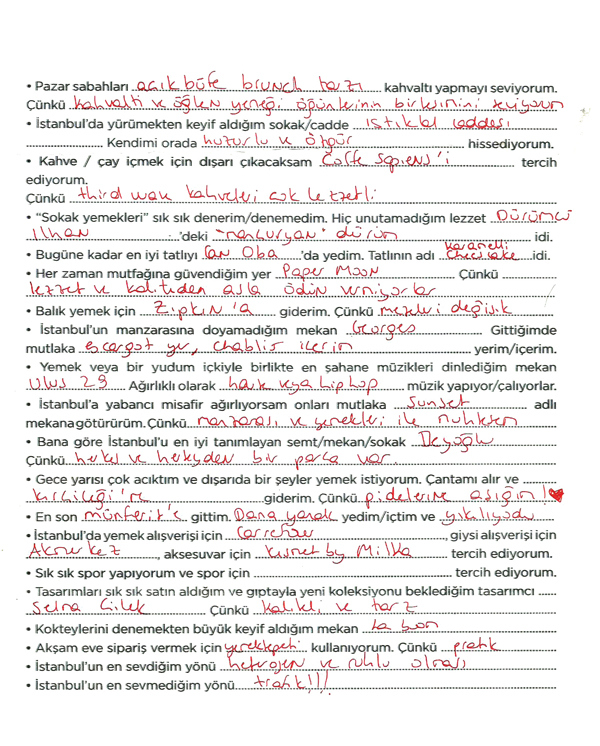 • Pazar sabahları açık büfe brunch tarzı kahvaltı yapmayı seviyorum.
Çünkü kahvaltı ve öğlen yemeği öğünlerinin birleşimini seviyorum
• İstanbul'da yürümekten keyif aldığım sokak/cadde istiklal caddesi
Kendimi orada huzurlu ve özgür hissediyorum.
• Kahve / çay içmek için dışarı çıkacaksam Coffe Sapiens'i tercih
ediyorum.
Çünkü third wave kahveleri çok lezzetli
• "Sokak yemekleri" sık sık denerim/denemedim. Hiç unutamadığım lezzet Dürümcü
İlhan 'deki "mancuryan" dürüm idi.
• Bugüne kadar en iyi tatlıyı Can Oba 'da yedim. Tatlının adı karamelli Cheescake idi.
• Her zaman mutfağına güvendiğim yer Paper Moon Çünkü
lezzet ve kaliteden asla ödün vermiyorlar
• Balık yemek için Zıpkın'a giderim. Çünkü mezeleri değişik
• İstanbul'un manzarasına doyamadığım mekan Georges Gittiğimde
mutlaka escargot yer, chablis içerim yerim/içerim.
• Yemek veya bir yudum içkiyle birlikte en şahane müzikleri dinlediğim mekan
Ulus 29 Ağırlıklı olarak house veya hip hop müzik yapıyor/çalıyorlar.
• İstanbul'a yabancı misafir ağırlıyorsam onları mutlaka Sunset adlı
mekana götürürüm. Çünkü manzarası ve yemekleri ile muhteşem
• Bana göre İstanbul'u en iyi tanımlayan semt/mekan/sokak Beyoğlu
Çünkü herkes ve herşeyden bir parça var.
• Gece yarısı çok acıktım ve dışarıda bir şeyler yemek istiyorum. Çantamı alır ve
giderim. Çünkü pidelerine aşığım!
• En son münferit'e gittim. Dana yanak yedim/içtim ve yıkılıyodu
• İstanbul'da yemek alışverişi için Carrefour, giysi alışverişi için
Akmerkez, aksesuvar için Kısmet by Milka tercih ediyorum.
• Sık sık spor yapıyorum ve spor için tercih ediyorum.
• Tasarımları sık sık satın aldığım ve gıptayla yeni koleksiyonu beklediğim tasarımcı
Selma Çilek Çünkü kaliteli ve tarz
• Kokteylerini denemekten büyük keyif aldığım mekan La bon
• Akşam eve sipariş vermek için yemeksepeti kullanıyorum. Çünkü pratik
• İstanbul'un en sevdiğim yönü heterojen ve ruhlu olması
• İstanbul'un en sevmediğim yönü trafik!!!